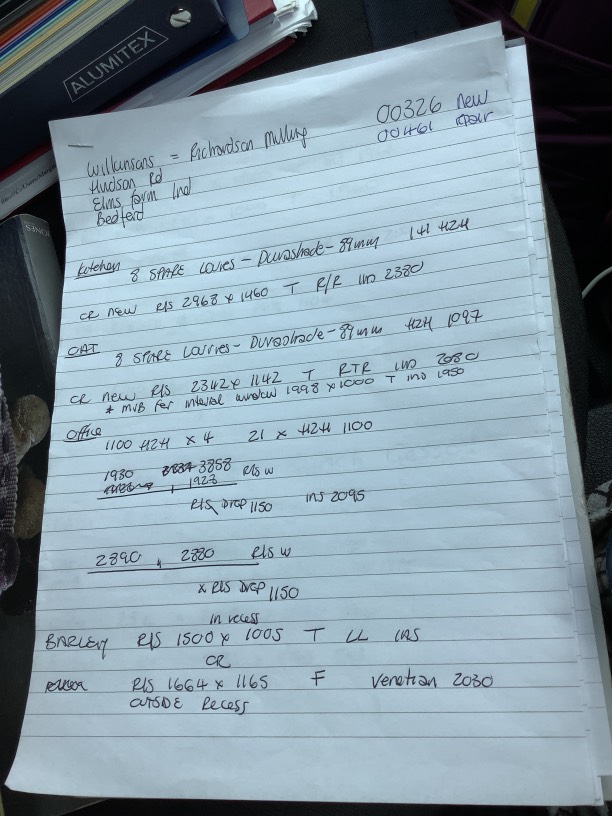 ALUMITEX
00326 new
00461
Wilkinsons = Richardson Milling
Hudson Rd
Elms farm Ind
Bedford
Kitchen 8 SPARE Louvres - Durashade - 89mm 141 H2H
OR new R/S 2968 x 1460 T R/R ins 2380
OAT 8 SPARE Louvres - Durashade - 89mm H2H 1097
OR new R/S 2342 x 1142 T RTR ins 2080
* MVB for internal window 1998 x 1000 T ins 1950
Office
1100 H2H x 4 21 x H2H 1100
1930 3858 R/S W
, 1923
R/S DROP 1150 ins 2095
2890 , 2880 R/S W
x R/S DROP 1150
in recess
BARLEY R/S 1500 x 1005 T LL INS
OR
R/S 1664 x 1165 F Venetian 2030
OUTSIDE Recess